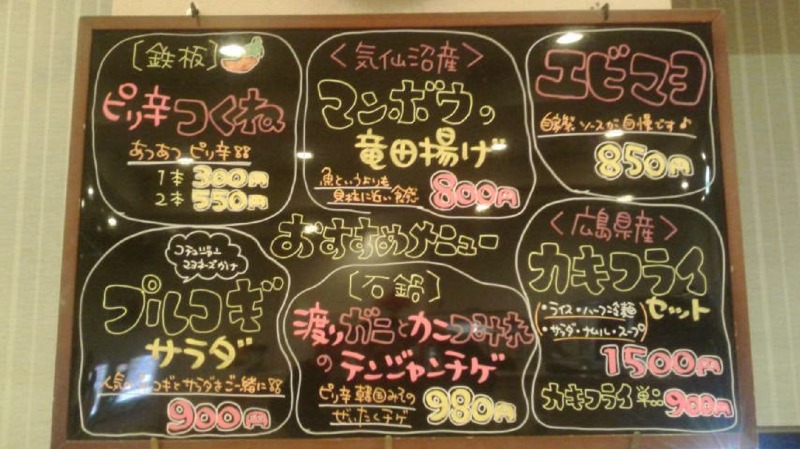 [鉄板]
ピリ辛つくね
あつあつピリ辛
1本 300円
2本 550円
<気仙沼産>
マンボウの
竜田揚げ
魚というよりも
貝柱に近い食感
800円
エビマヨ
自家製ソースが自慢です♪
850円
おすすめメニュー
コチュジャン
マヨネーズかけ
プルコギ
サラダ
人気のプルコギとサラダをご一緒に
900円
[石鍋]
渡りガニとカニつみれ
のテンジャンチゲ
ピリ辛 韓国みその
ぜいたくチゲ
980円
<広島県産>
カキフライ
セット
・ライス・ハーフ冷麺
・サラダ・ナムル・スープ
1500円
カキフライ単品 900円